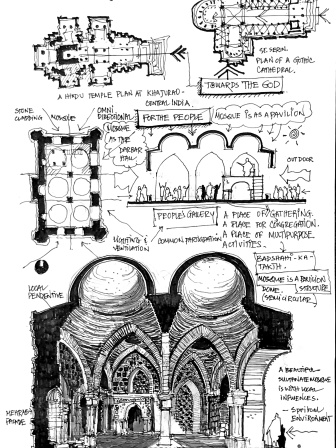 A HINDU TEMPLE PLAN AT KHAJURAO-
CENTRAL INDIA.
PLAN OF A GOTHIC
CATHEDRAL.
TOWARDS THE GOD
STONE
CLADDING
MOSQUE
OMNI
DIRECTIONAL
MOSQUE
AS THE
DARBAR
HALL
FOR THE PEOPLE
MOSQUE IS AS A PAVILION
OUT DOOR
PEOPLE'S GALERY
LIGHTING &
VENTILATION
COMMON PARTICIPATION
A PLACE OF GATHERING.
A PLACE FOR CONGREGATION.
A PLACE OF MULTIPURPOSE
ACTIVITIES.
BADSHAHI-KA-
TAKTH.
MOSQUE IS A PAVILION
DOME STRUCTURE
(SEMI CIRCULAR)
LOCAL
PENDENTIVE
MEHRAB
A BEAUTIFUL
SULTANATE MOSQUE
IS WITH LOCAL
INFLUENCES.
- SPIRITUAL
ENVIRONMENT